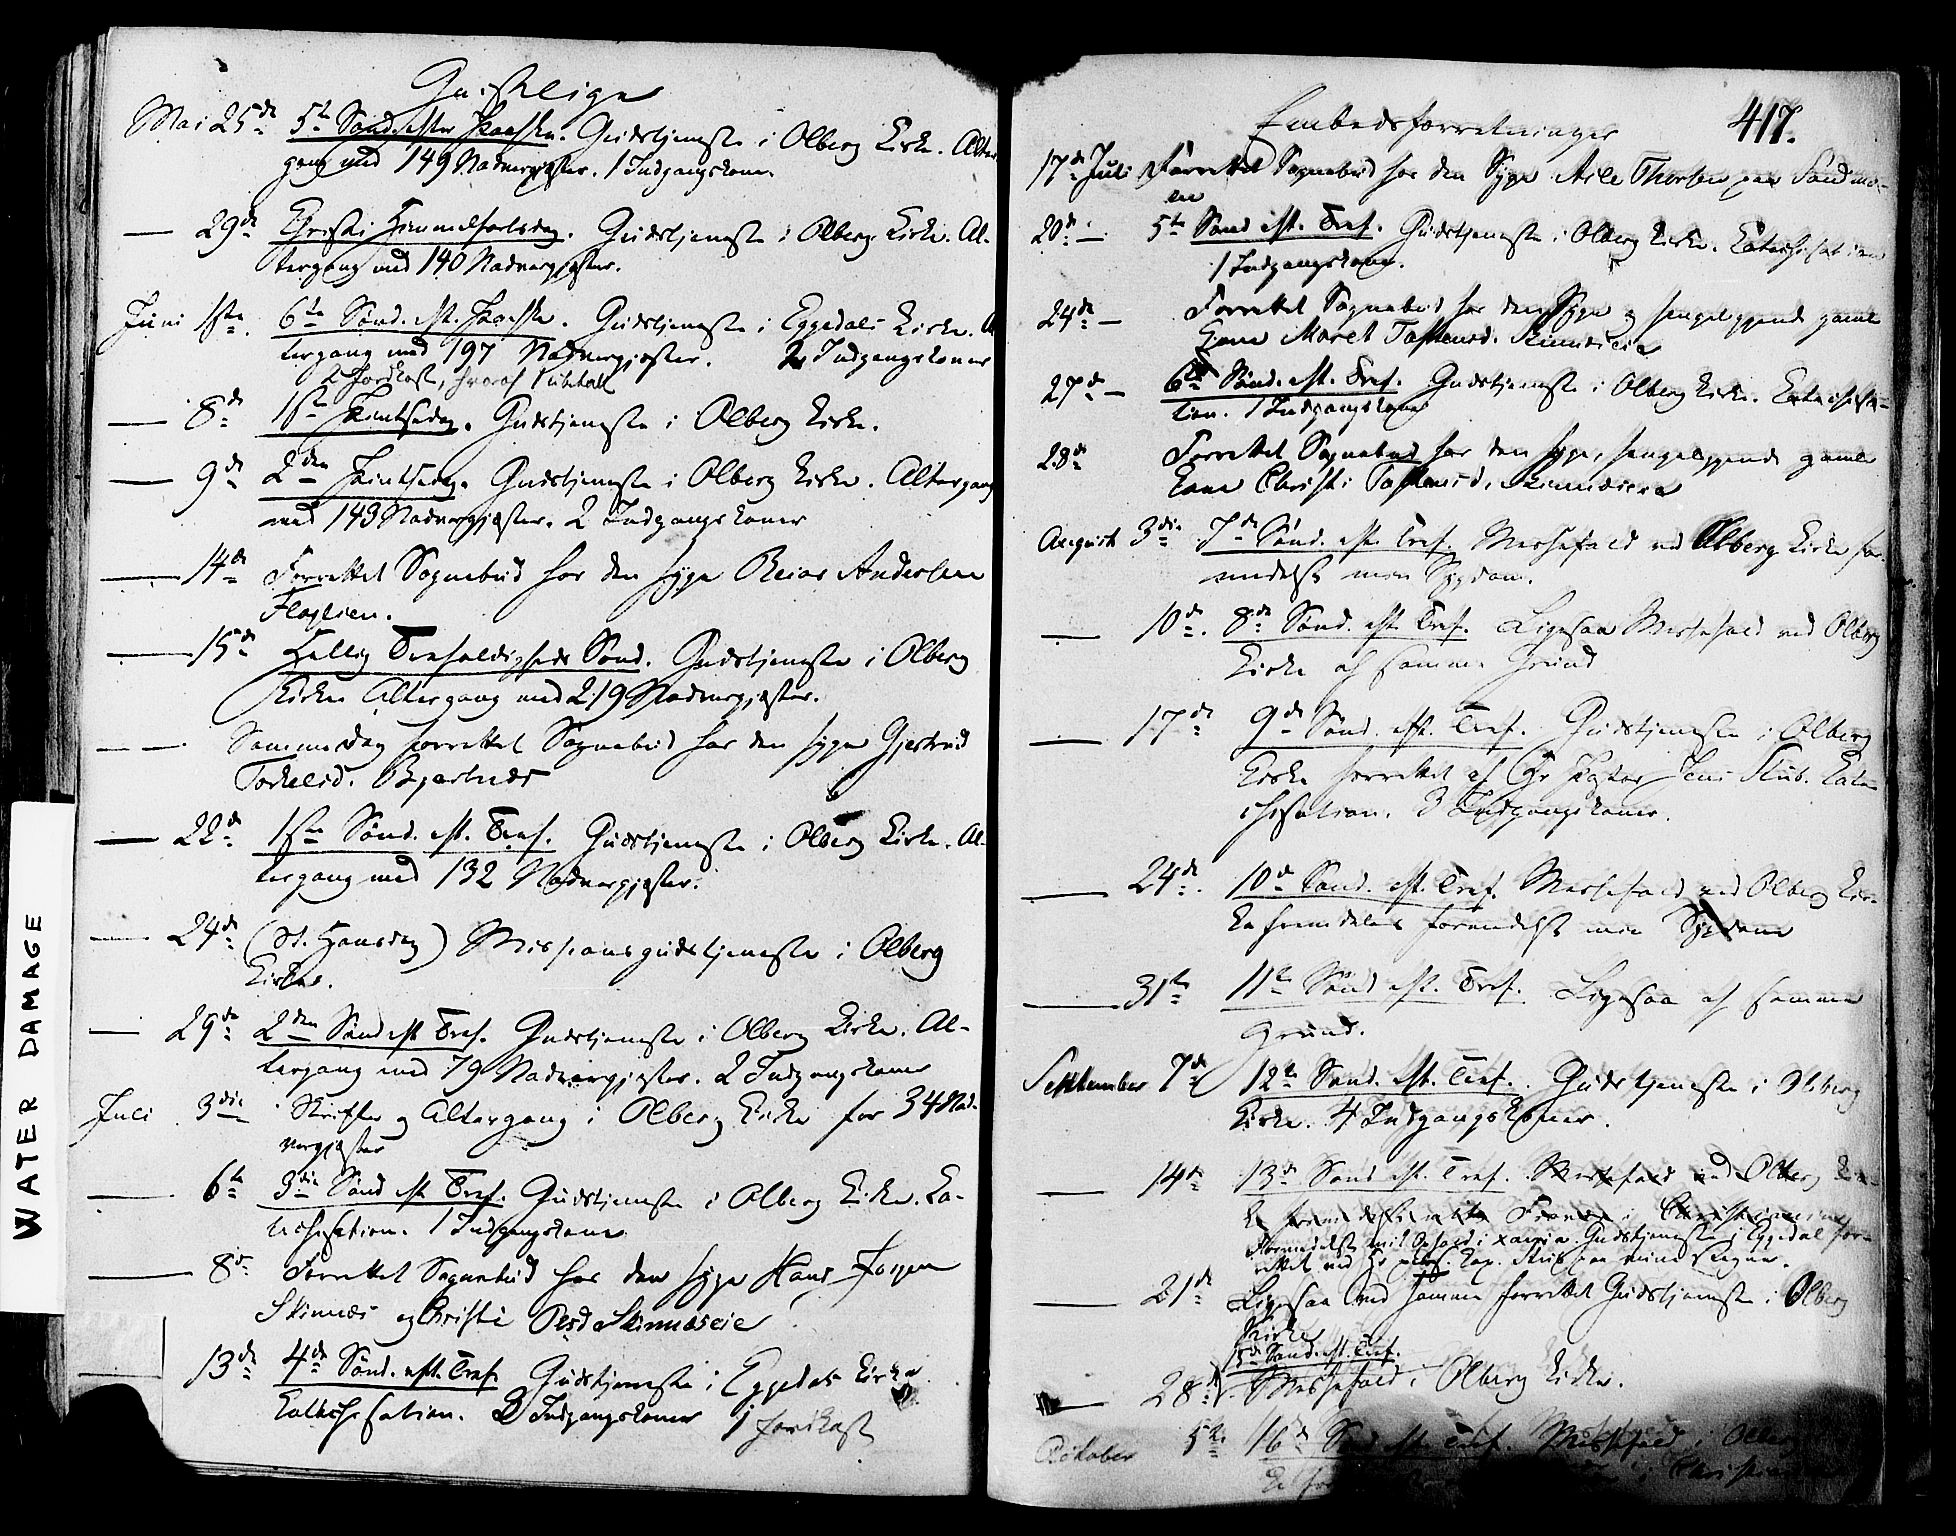 Geistlige
Mai 25de 5te Sønd. efter Paaske. Gudstjeneste i Olberg Kirke. Alter
gang med 149 Nadvergjæster. 1 Indgangskone.
— 29de Christi Himmelfartsdag. Gudstjeneste i Olberg Kirke. Al-
tergang med 140 Nadvergjæster.
Juni 1ste 6te Sønd. eft. Paaske. Gudstjeneste i Eggedals Kirke. Al
tergang med 197 Nadvergjæster. 2 Indgangskoner
2 Jordkast, hvoraf
— 8de 1ste Pintsedag. Gudstjeneste i Olberg Kirke.
— 9de 2den Pintsedag. Gudstjeneste i Olberg Kirke. Altergang
med 143 Nadvergjæster. 2 Indgangskoner
— 14de Forrettet Sognebud hos den syge Reiar Andersen
Flaglien.
— 15de Hellig Trefoldigheds Sønd. Gudstjeneste i Olberg
Kirke Altergang med 219 Nadvergjæster.
— — Sammesdag forrettet Sognebud hos den syge Gjertrud
Torkelsd. Bjertnæs
— 22de 1ste Sønd. eft. Tref. Gudstjeneste i Olberg Kirke. Al-
tergang med 132 Nadvergjæster.
— 24de (St. Hansdag) Missionsgudstjeneste i Olberg
Kirke.
— 29de 2den Sønd eft Tref. Gudstjeneste i Olberg Kirke. Al-
tergang med 79 Nadvergjæster. 2 Indgangskoner
Juli 3die Skrifte og Altergang i Olberg Kirke for 34 Nad-
vergjæster
— 6te 3die Sønd eft Tref. Gudstjeneste i Olberg Kirke. Ca-
techisation. 1 Indgangskone
— 8de Forrettet Sognebud hos den syge Hans Jørgen
Skinnes og Christi Skinnæseie
13de 4de Sønd. eft. Tref. Gudstjeneste i Eggedals Kirke
Katechisation. 2 Indgangskoner 1 Jordkast
WATER DAMAGE
Embedsforretninger 417.
17de Juli Forrettet Sognebud hos den Syge Thorsen paa Sandmo-
en
20de — 5te Sønd eft. Tref. Gudstjeneste i Olberg Kirke. Katechisation
1 Indgangskone.
24de — Forrettet Sognebud hos den Syge og sengeliggende gamle
Kone Maret
27de — 6te Sønd. eft. Tref. Gudstjeneste i Olberg Kirke. Katechisa-
tion. 1 Indgangskone
28de Forrettet Sognebud hos den syge, sengeliggende gamle
Kone Christi Skinnæseie
August 3die 7de Sønd. eft. Tref. Messefald ved Olberg Kirke for-
medelst min Sygdom.
— 10de. 8de Sønd. eft. Tref. Ligesaa Messefald ved Olberg
Kirke af samme Grund
— 17de 9de Sønd. eft. Tref. Gudstjeneste i Olberg
Kirke forrettet af Hr Pastor Jens Stub. Kate-
chisation. 3 Indgangskoner.
— 24de. 10de Sønd. eft. Tref. Messefald ved Olberg Kir-
ke fremdeles formedelst min Sygdom
— 31te 11te Sønd eft. Tref. Ligesaa af samme
Grund.
September 7de 12te Sønd. eft. Tref. Gudstjeneste i Olberg
Kirke. 4 Indgangskoner.
— 14de 13de Sønd eft. Tref. Messefald ved Olberg Kir-
ke i
Formedelst mit Ophold i Xania. Gudstjeneste i Eggedal for-
rettet ved Hr Kap. Stub paa mine Vegne.
— 21de Ligesaa ved samme forrettet Gudstjeneste i Olberg
Kirke
15de Sønd. eft. Tref.
— 28de Messefald i Olberg Kirke.
Oktober 5te 16de Sønd eft. Tref. Messefald i Olberg